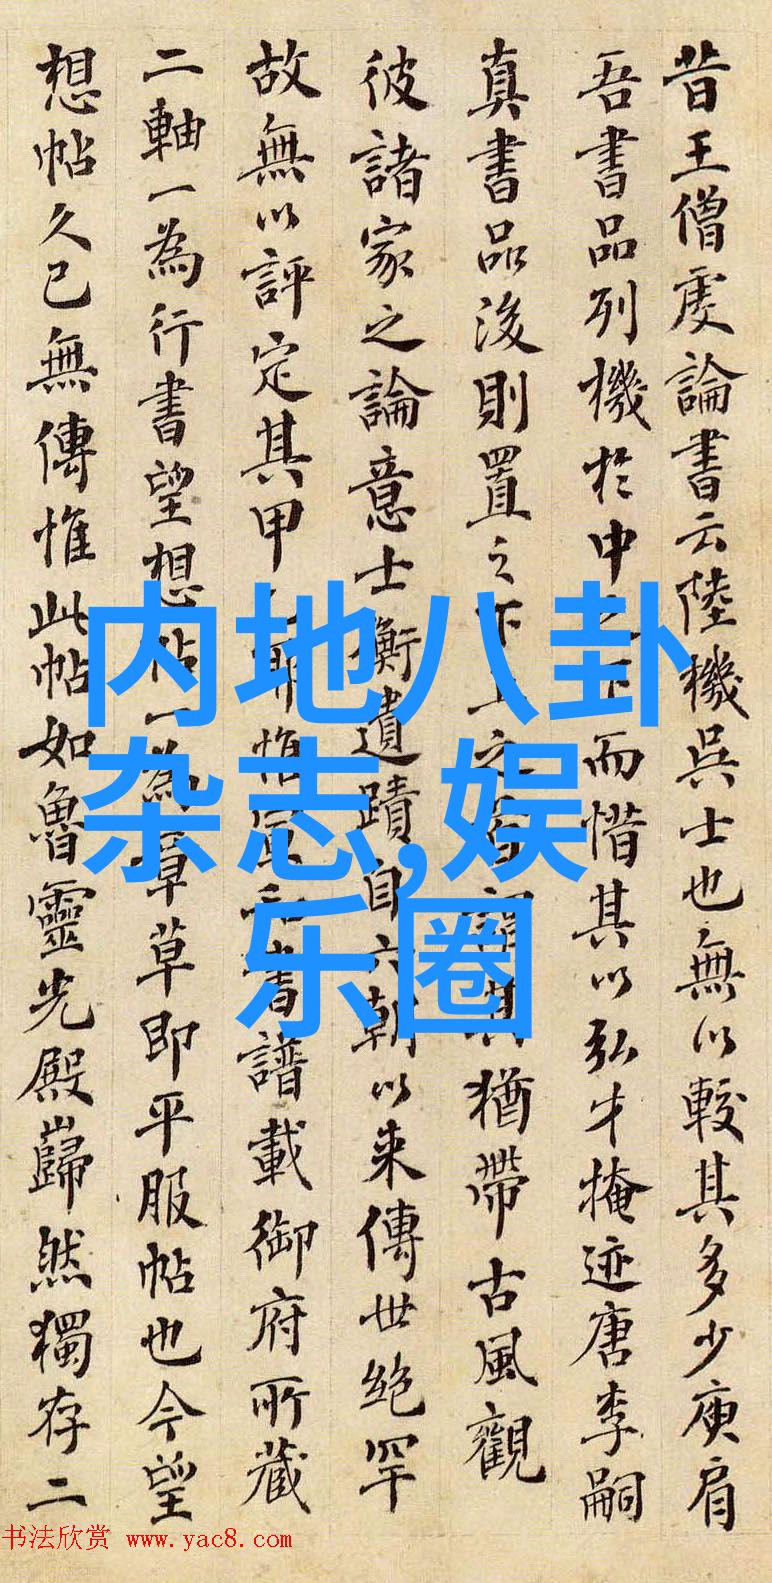 昔王僧虔論書云陸機吳士也無以較其多少庾肩
吾書品列機於中之下而惜其以弘才掩迹唐李嗣
真書品後則置之下上之其猶帶古風觀
彼諸家之論意士衡遺蹟自六朝以来傳世絶罕
故無以評定其甲耶惟宣和書譜載御府所藏
二軸一為行書望想帖一為章草即平服帖也今望
想帖久已無傳惟此帖如魯靈光殿巋然獨存二
内地八卦
杂志,娱
乐圈
书法欣赏 www.yac8.com